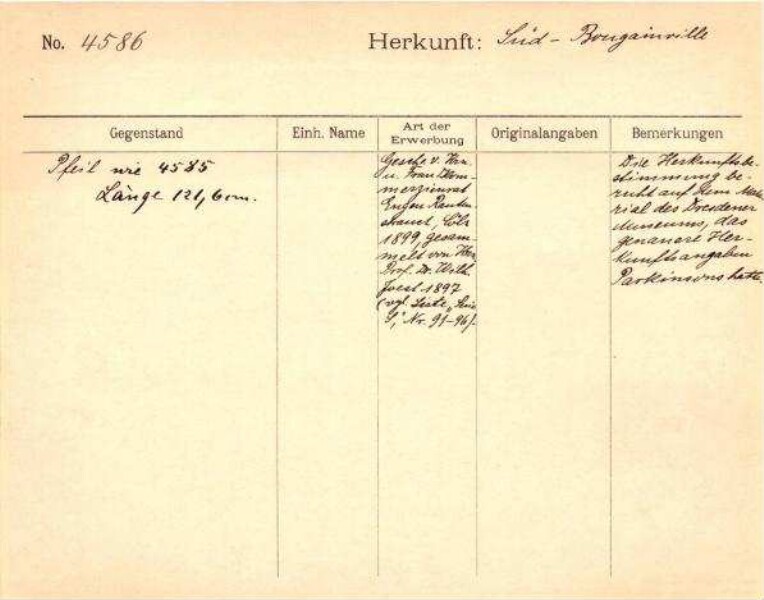 No. 4586
Herkunft: Süd - Bougainville
Gegenstand
Einh. Name
Art der Erwerbung
Originalangaben
Bemerkungen
Pfeil wie 4585
Länge 121,6 cm.
Geschk v. Hrn.
u. Frau Kom-
merzienrat
Eugen Rauten
strauch, Cöln
1899, gesam-
melt von Herr
Prof. Dr. Wilh.
Joest 1897
(vgl. Liste
S," Nr. 91-96).
Die Herkunftsbe-
stimmung be-
ruht auf dem Mate-
rial des Dresdener
Museums, das
genauere Her-
kunftsangaben
Parkinsons hatte.